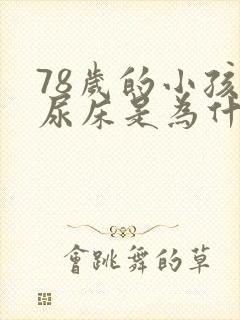 78歲的小孩
尿床是為什
會跳舞的草